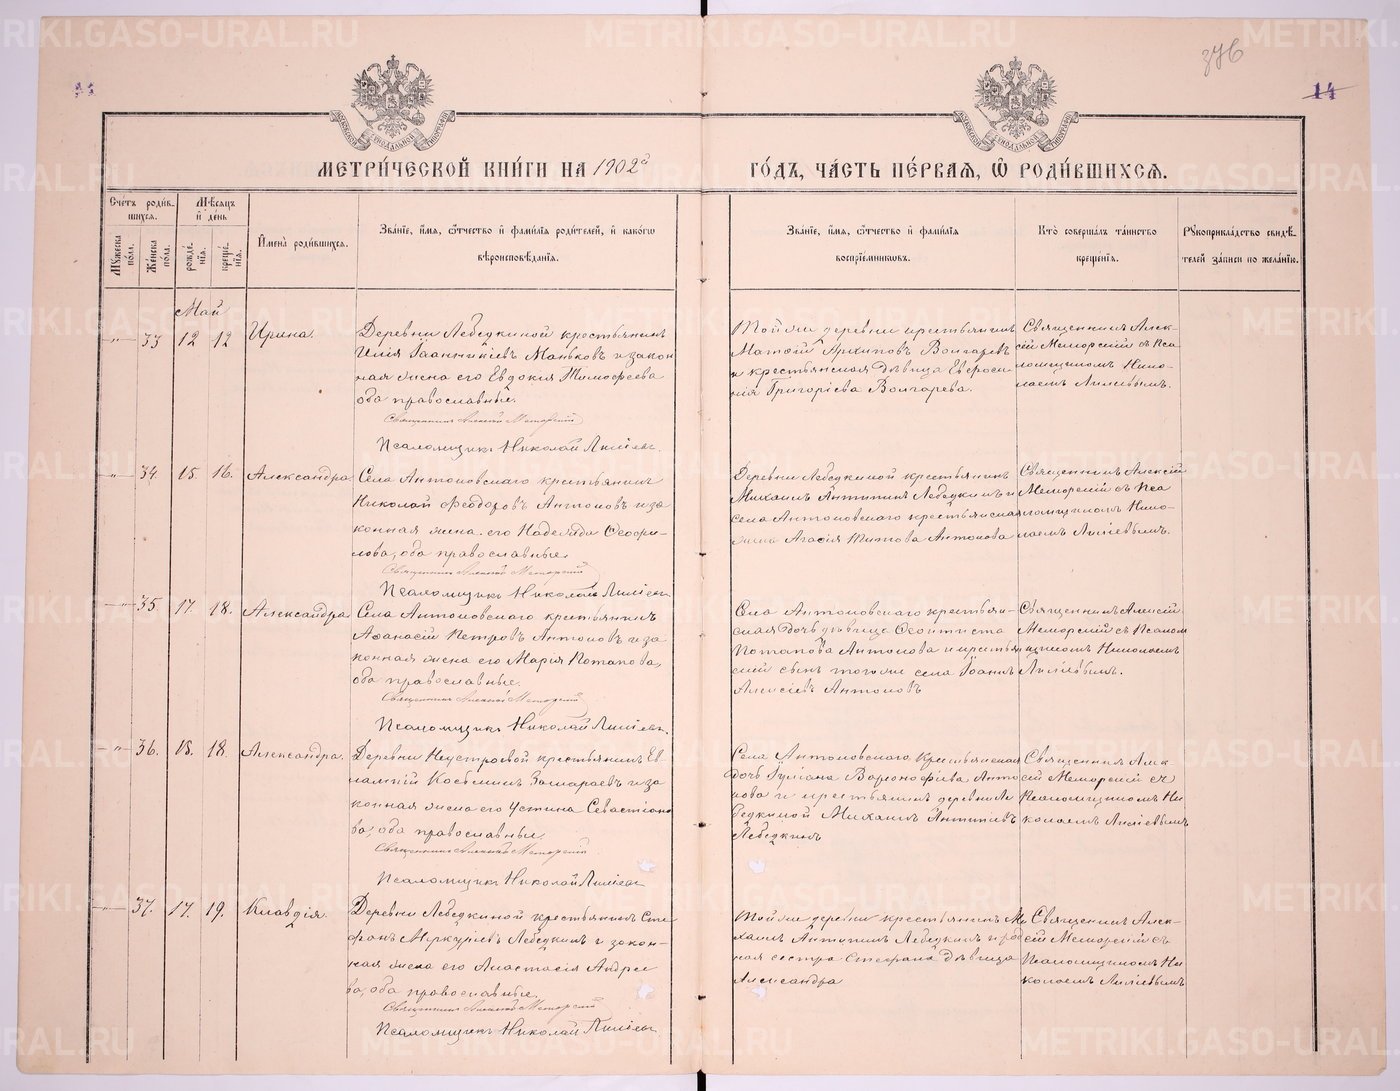 METRIKI.GASO-URAL.RU
376
14
МЕТРИ́ЧЕСКОЙ КНИ́ГИ НА 1902й ГО́ДЪ, ЧА́СТЬ ПЕ́РВАЯ, Ѡ РОДИ́ВШИХСѦ.
Сче́тъ роди́в-
шихся.
Мѣ́сяцъ
и де́нь
Му́жеска по́ла.
Же́нска по́ла.
рожде́-
нїя.
креще́-
нїя.
И́мена̀ роди́вшихся.
Зва́нїе, и́мя, ѻ҆́тчество и҆ фами́лїя роди́телей, и҆ како́гѡ
вѣроисповѣ́данїя.
Зва́нїе, и́мя, ѻ҆́тчество и҆ фами́лїя
воспрїе́мниковъ.
Кто̀ соверша́лъ та́инство
креще́нїя.
Рꙋкоприкла́дство свидѣ́-
телей за́писи по жела́нїю.
Май
33 12 12 Ирина.
Деревни Лебедкиной крестьянинъ
Илія Іоанникіевъ Маньковъ и закон
ная жена его Евдокія Тимофеева
оба православные.
Священникъ Алексій Меморскій
Псаломщикъ Николай Лиліевъ.
Той же деревни крестьянинъ
Матѳій Архиповъ Волгаревъ
и крестьянская дѣвица Евфроси-
нія Григоріева Волгарева.
Священникъ Алек-
сій Меморскій съ Пса-
ломщикомъ Нико-
лаемъ Лиліевымъ.
34. 15. 16. Александра
Села Антоновскаго крестьянинъ
Николай Ѳеодоровъ Антоновъ и за
конная жена его Надежда Ѳеофи-
лова, оба православные.
Священникъ Алексій Меморскій
Псаломщикъ Николай Лиліевъ
Деревни Лебедкиной крестьянинъ
Михаилъ Антипинъ Лебедкинъ и
села Антоновскаго крестьянская
жена Агафія Титова Антонова
Священникъ Алексій
Меморскій съ Пса
ломщикомъ Нико-
лаемъ Лиліевымъ.
35. 17. 18. Александра
Села Антоновскаго крестьянинъ
Аѳанасій Петровъ Антоновъ и за
конная жена его Марія Потапова,
оба православные.
Священникъ Алексій Меморскій
Псаломщикъ Николай Лиліевъ.
Села Антоновскаго крестьян-
ская дочь дѣвица Ѳеоктиста
Потапова Антонова и крестьян
скій сынъ того же села Іоаннъ
Алексіевъ Антоновъ
Священникъ Алексій
Меморскій съ Псалом
щикомъ Николаемъ
Лиліевымъ.
36. 18. 18. Александра.
Деревни Неустроевой крестьянинъ Ев
лампій Косьминъ Замараевъ и за
конная жена его Устина Севастіано
ва, оба православные.
Священникъ Алексій Меморскій
Псаломщикъ Николай Лиліевъ
Села Антоновскаго крестьянская
дочь Іуліана Варсонофіева Анто
нова и крестьянинъ деревни Ле
бедкиной Михаилъ Антипіевъ
Лебедкинъ
Священникъ Алек
сій Меморскій съ
Псаломщикомъ Ни
колаемъ Лиліевымъ
37. 17. 19. Клавдія.
Деревни Лебедкиной крестьянинъ Сте
фанъ Меркуріевъ Лебедкинъ и закон-
ная жена его Анастасія Андрее
ва, оба православные.
Священникъ Алексій Меморскій
Псаломщикъ Николай Лиліевъ
Той же деревни крестьянинъ Ми
хаилъ Антипинъ Лебедкинъ и род
ная сестра Стефана дѣвица
Александра
Священникъ Алек-
сій Меморскій съ
Псаломщикомъ Ни
колаемъ Лиліевымъ